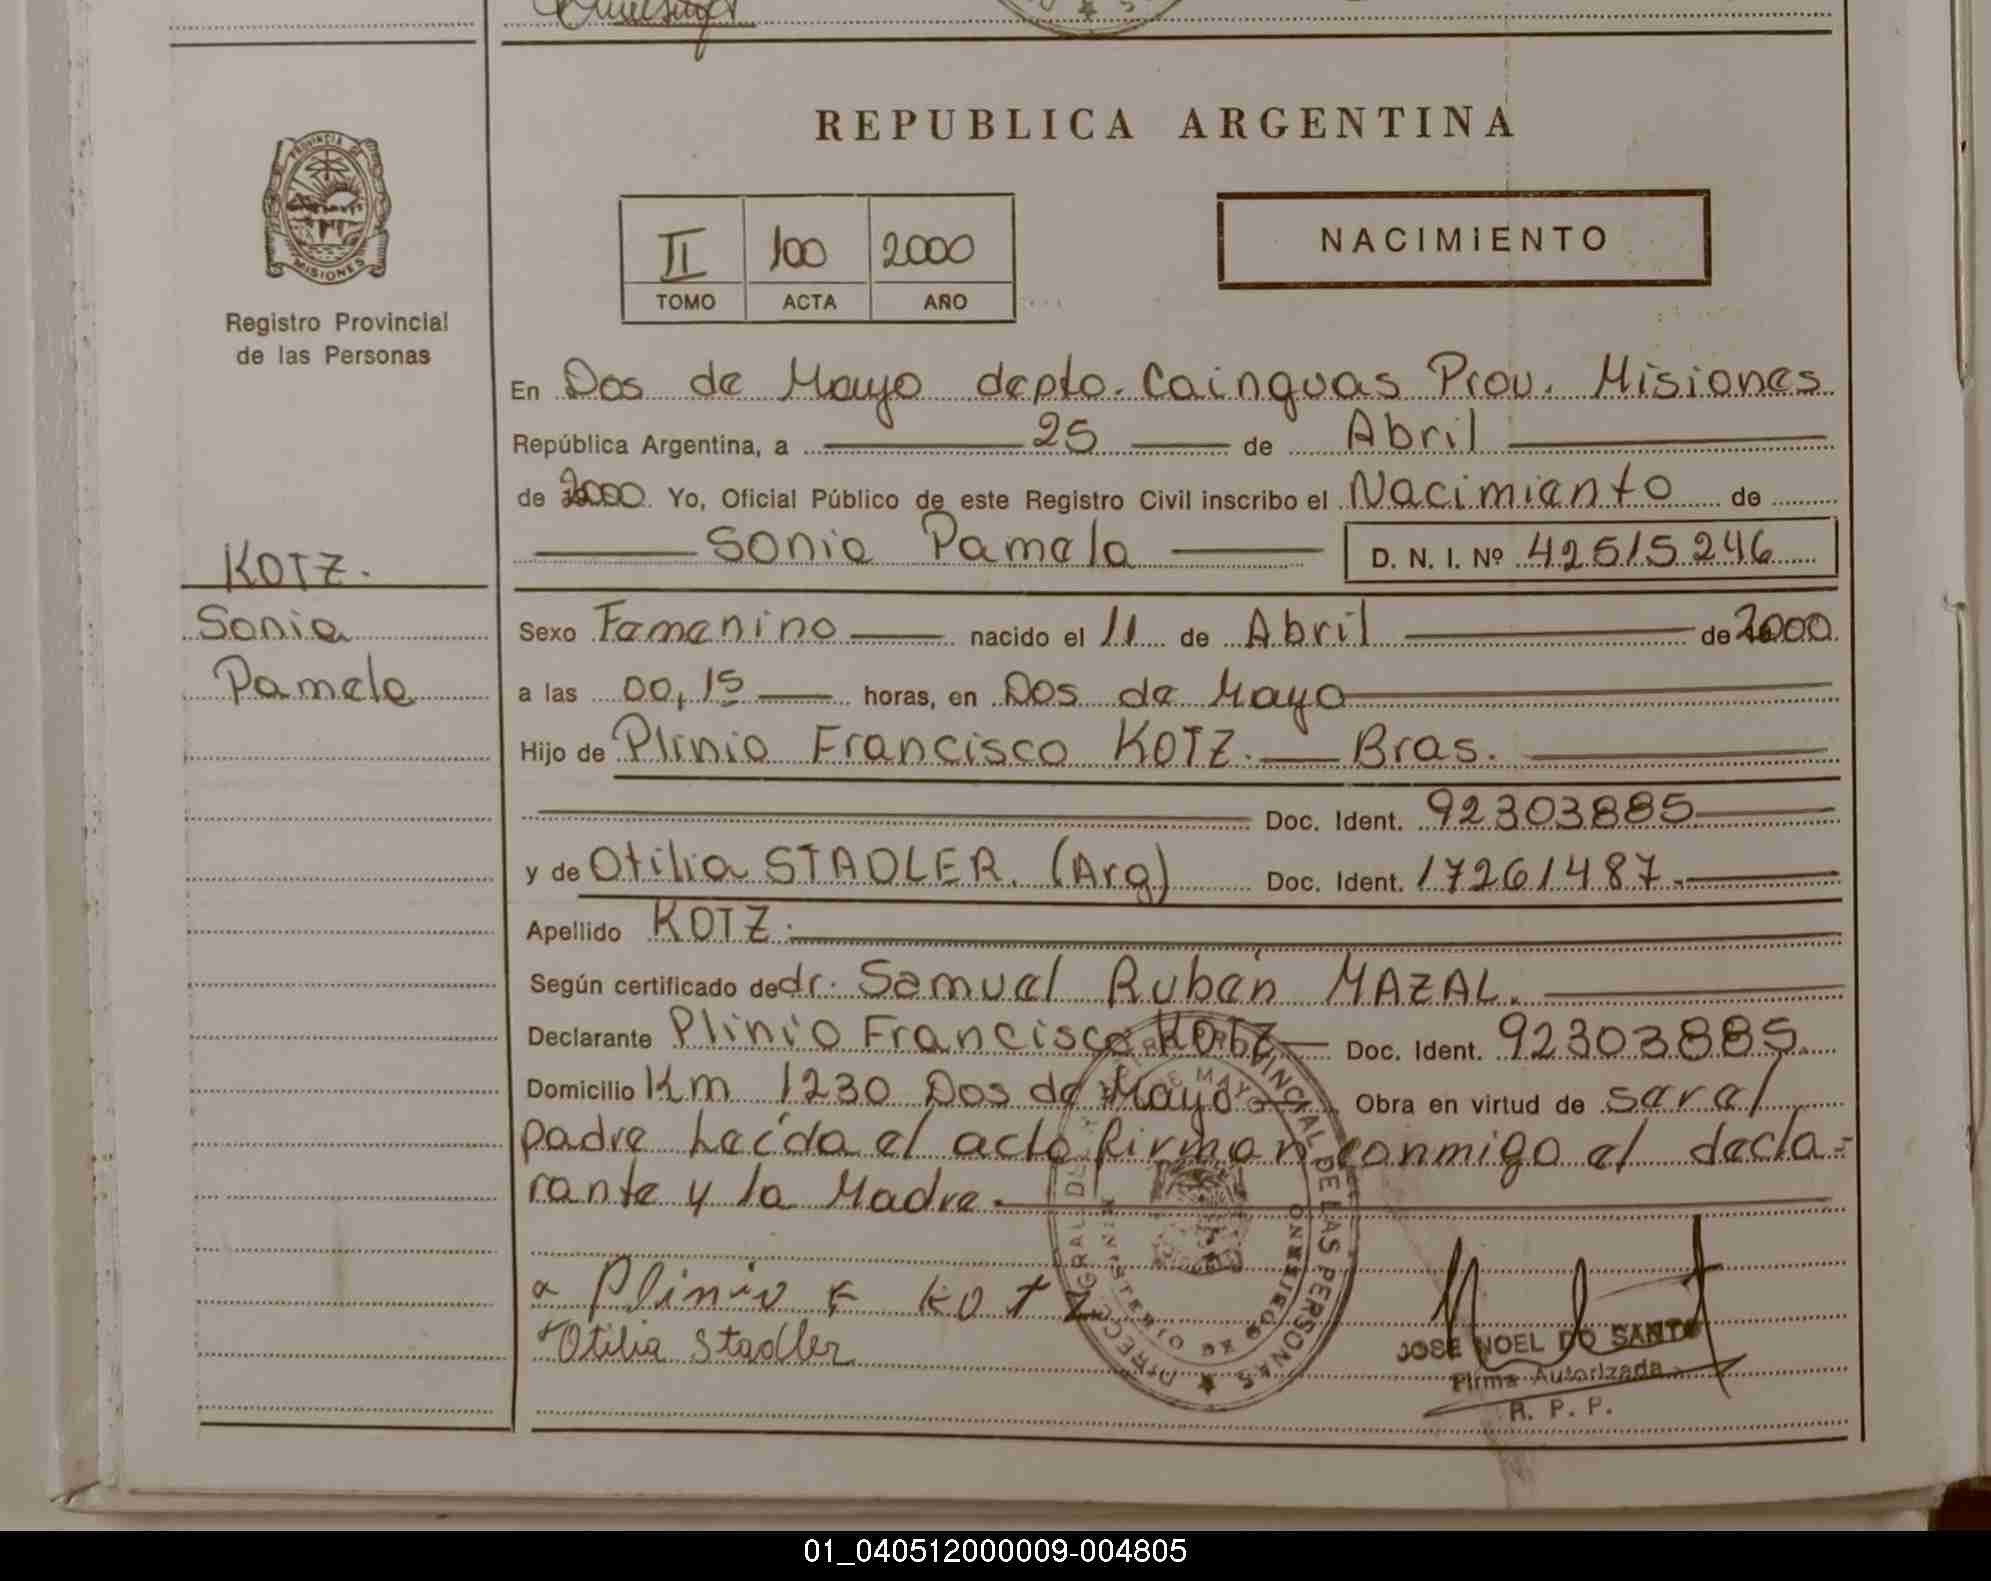 REPUBLICA ARGENTINA
PROVINCIA DE
MISIONES
Registro Provincial
de las Personas
II 100 2000
TOMO ACTA AÑO
NACIMIENTO
En Dos de Mayo depto. Cainguas Prov. Misiones
República Argentina, a 25 de Abril
de 2000 Yo, Oficial Público de este Registro Civil inscribo el Nacimiento de
Sonia Pamela D. N. I. Nº 42515246
KOTZ.
Sonia
Pamela
Sexo Femenino nacido el 11 de Abril de 2000
a las 00,15 horas, en Dos de Mayo
Hijo de Plinio Francisco KOTZ. Bras.
Doc. Ident. 92303885
y de Otilia STADLER. (Arg) Doc. Ident. 17261487.
Apellido KOTZ.
Según certificado de dr. Samuel Rubén MAZAL.
Declarante Plinio Francisco KOTZ Doc. Ident. 92303885.
Domicilio Km 1230 Dos de Mayo Obra en virtud de ser el
padre Leída el acto firman conmigo el decla=
rante y la Madre.
Plinio F Kotz
Otilia Stadler
JOSE NOEL DO SANTO
Firma Autorizada
R. P. P.
01_040512000009-004805